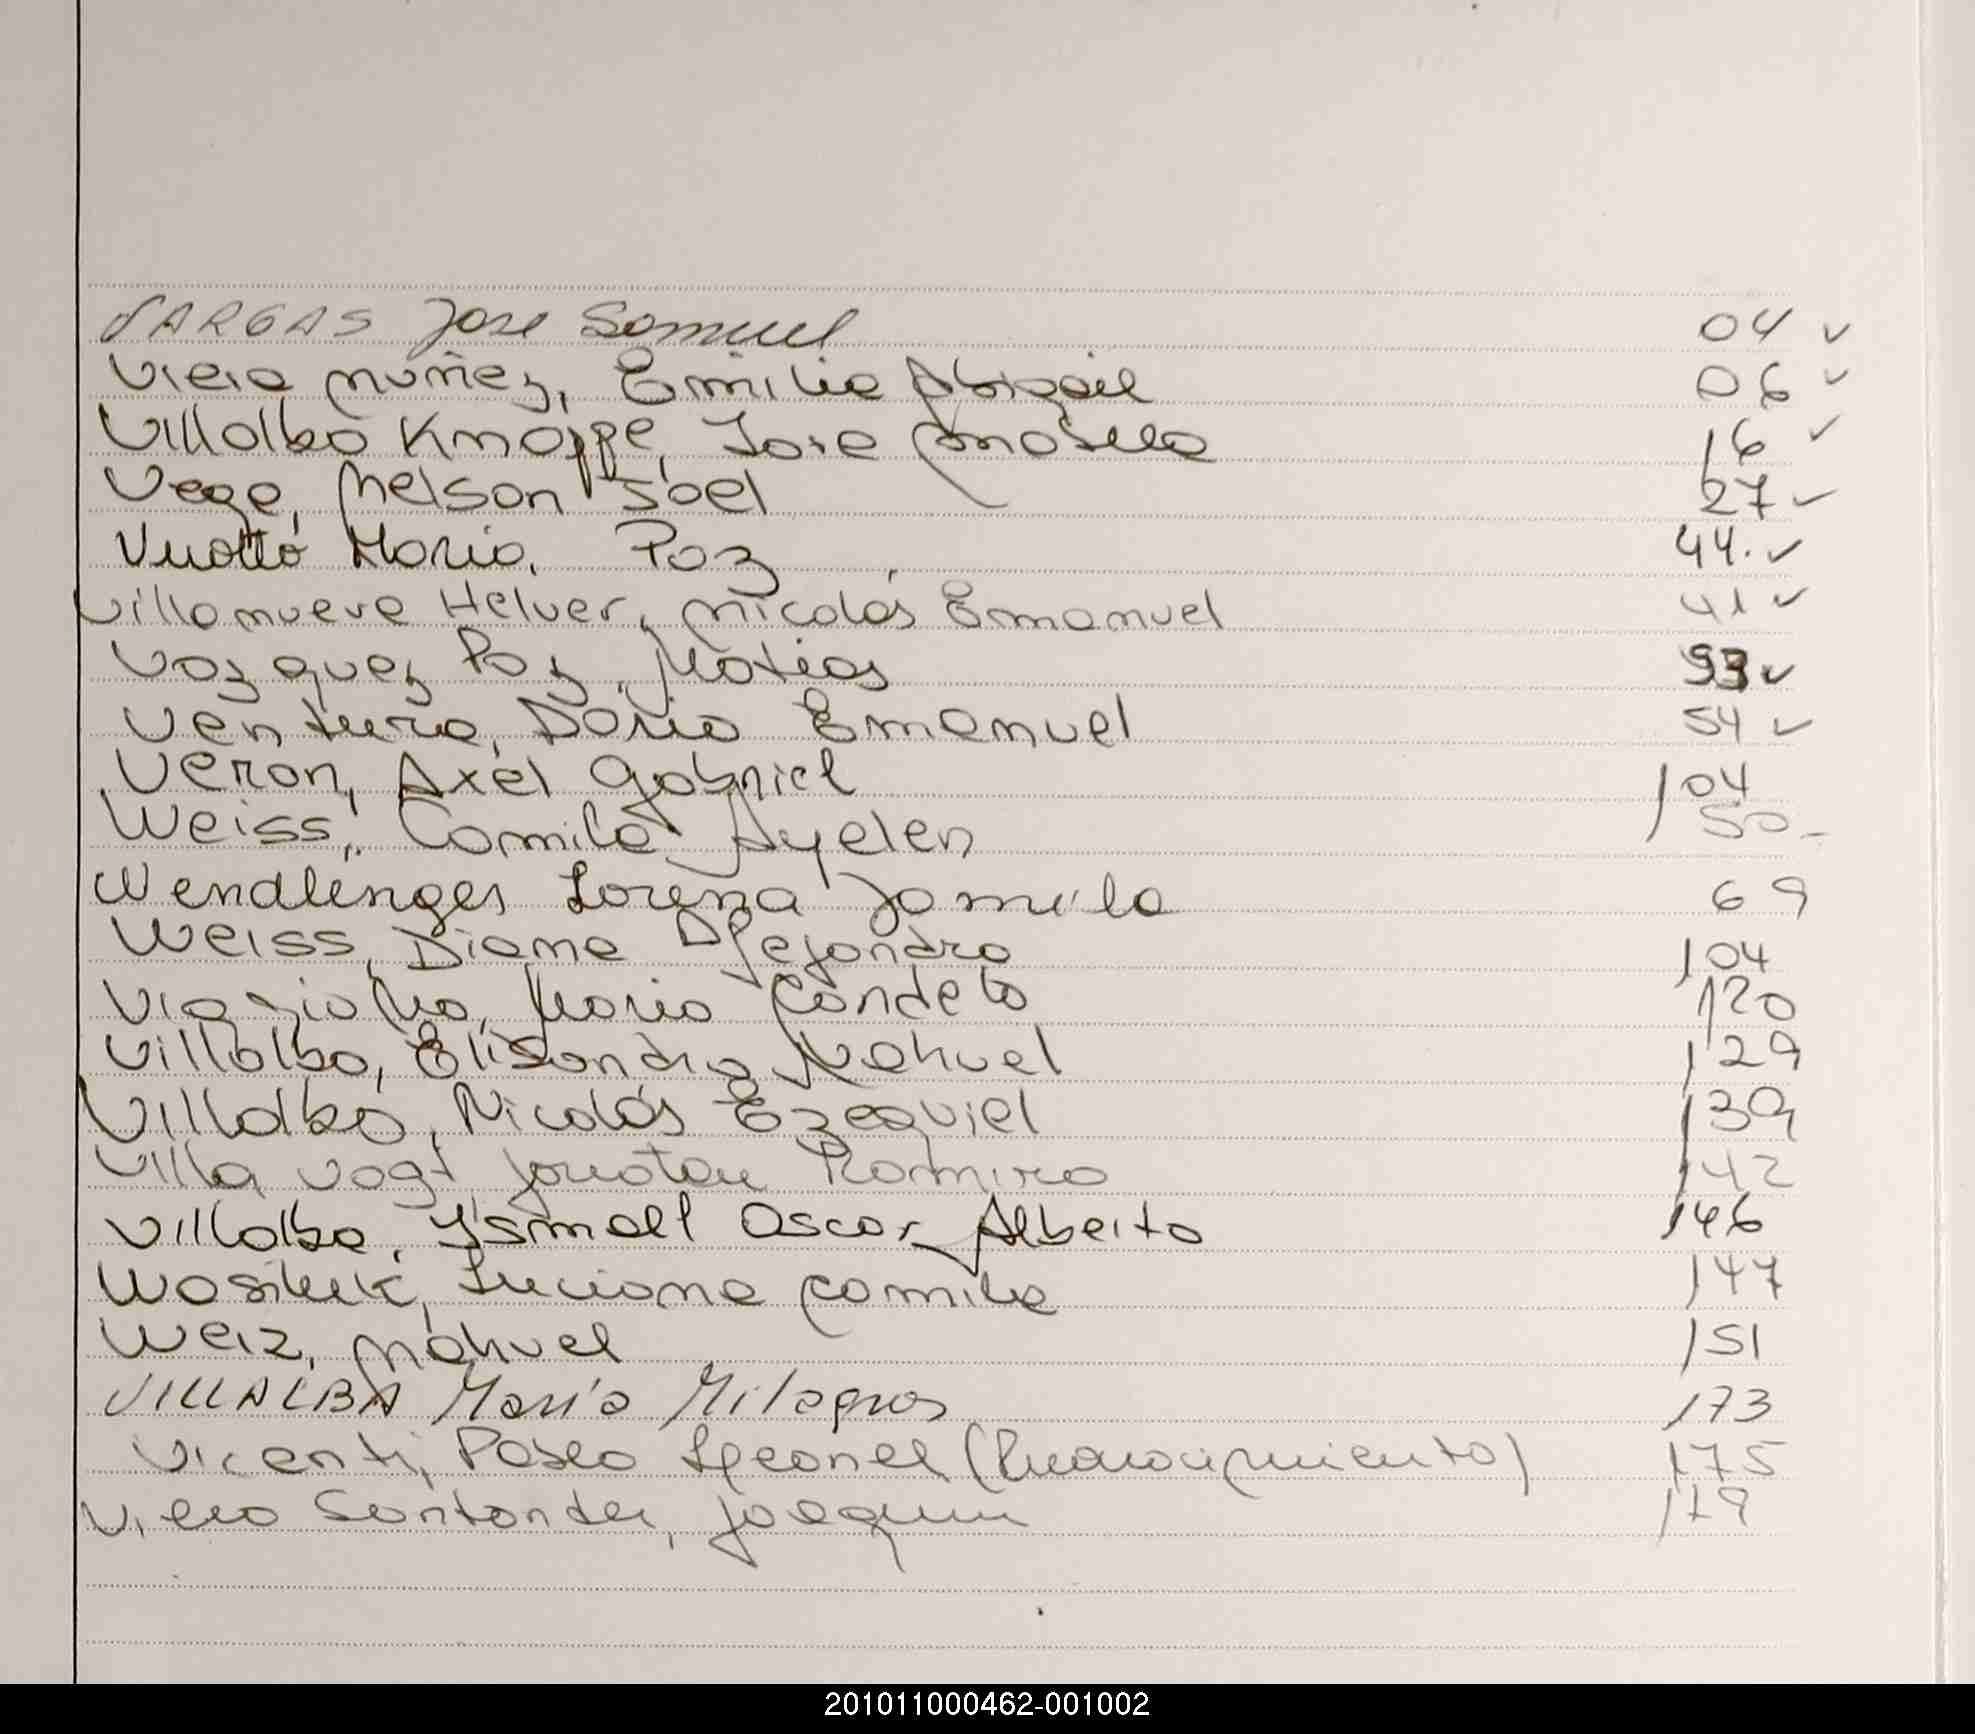 VARGAS Jose Samuel 04 ✓
Viera Nuñez, Emilia Abigail 06 ✓
Villalba Knoppe, Jose 16 ✓
Vega, Nelson Joel 27 ✓
Vuotto Maria Paz 44. ✓
Villanueva Helver, Nicolás Emanuel 41 ✓
Vazquez Paz, Matias 53 ✓
Ventura, Dario Emanuel 54 ✓
Veron, Axel Gabriel 104
Weiss, Camila Ayelen 50
Wendlinger Lorena Jamila 69
Weiss, Diana Alejandra 104
Maria Candela 120
Villalba, Elisandro Nahuel 129
Villalba, Nicolás Ezequiel 139
Villa Vogt Jonatan Ramiro 142
Villalba, Ysmael Oscar Alberto 146
Wasiluk, Luciana Camila 147
Weiz, Nahuel 151
VILLALBA María Milagros 173
Vicenti, Pablo Leonel (Reconocimiento) 175
Viera Santander, Joaquin 179
201011000462-001002